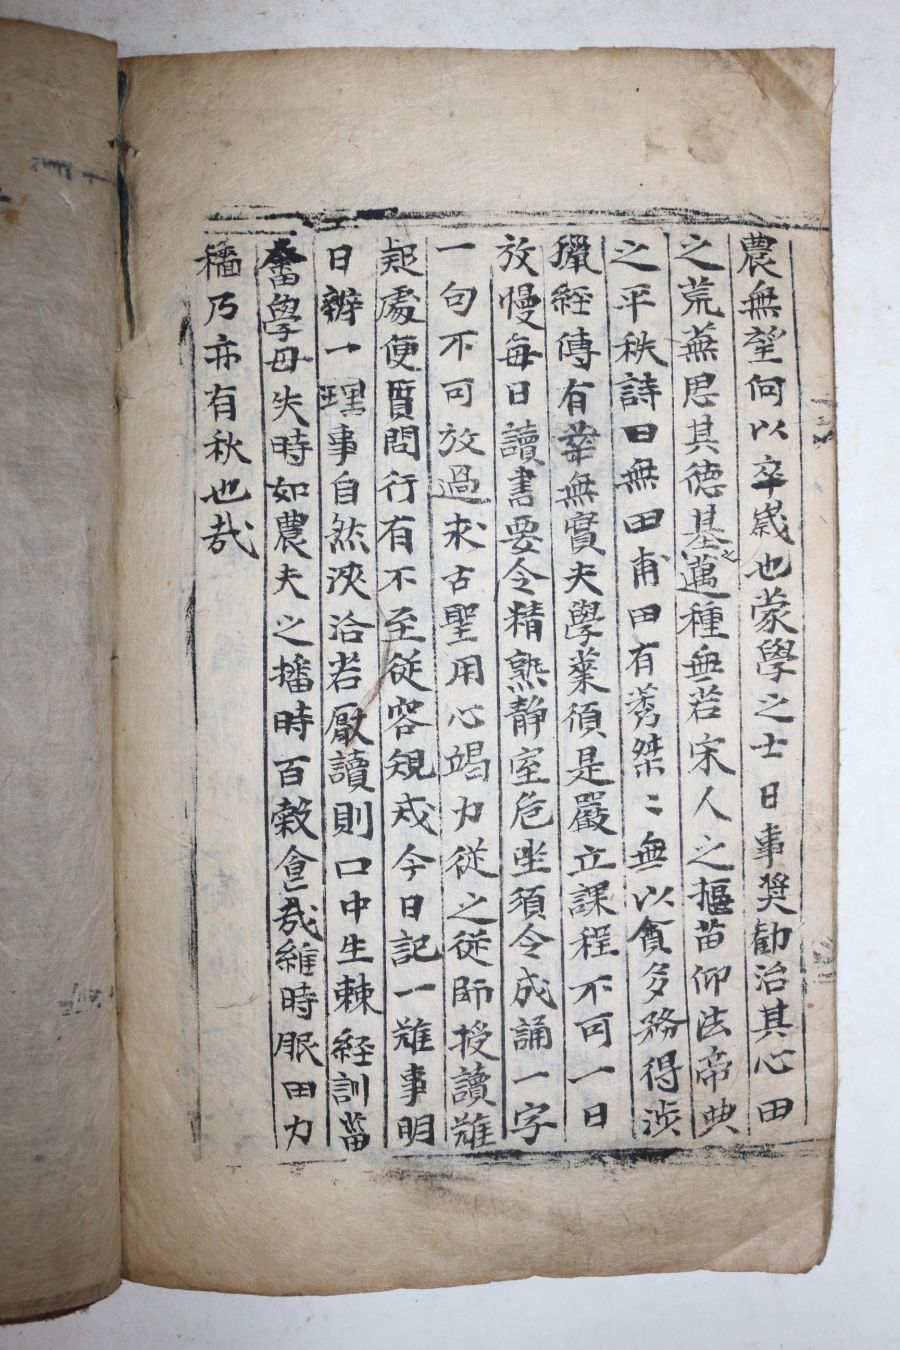 農無望何以卒歲也蒙學之士日事奬勸治其心田
之荒蕪思其德基之邁種無若宋人之揠苗仰法帝典
之平秩詩曰無田甫田有莠桀〻無以貪多務得涉
獵經傳有華無實夫學業須是嚴立課程不可一日
放慢每日讀書要令精熟靜室危坐須令成誦一字
一句不可放過求古聖用心竭力從之從師授讀雖
疑處便質問行有不至從容規戒今日記一雖事明
日辨一理事自然浹洽若厭讀則口中生棘經訓菑
畬學毋失時如農夫之播時百穀食哉維時服田力
穡乃亦有秋也哉